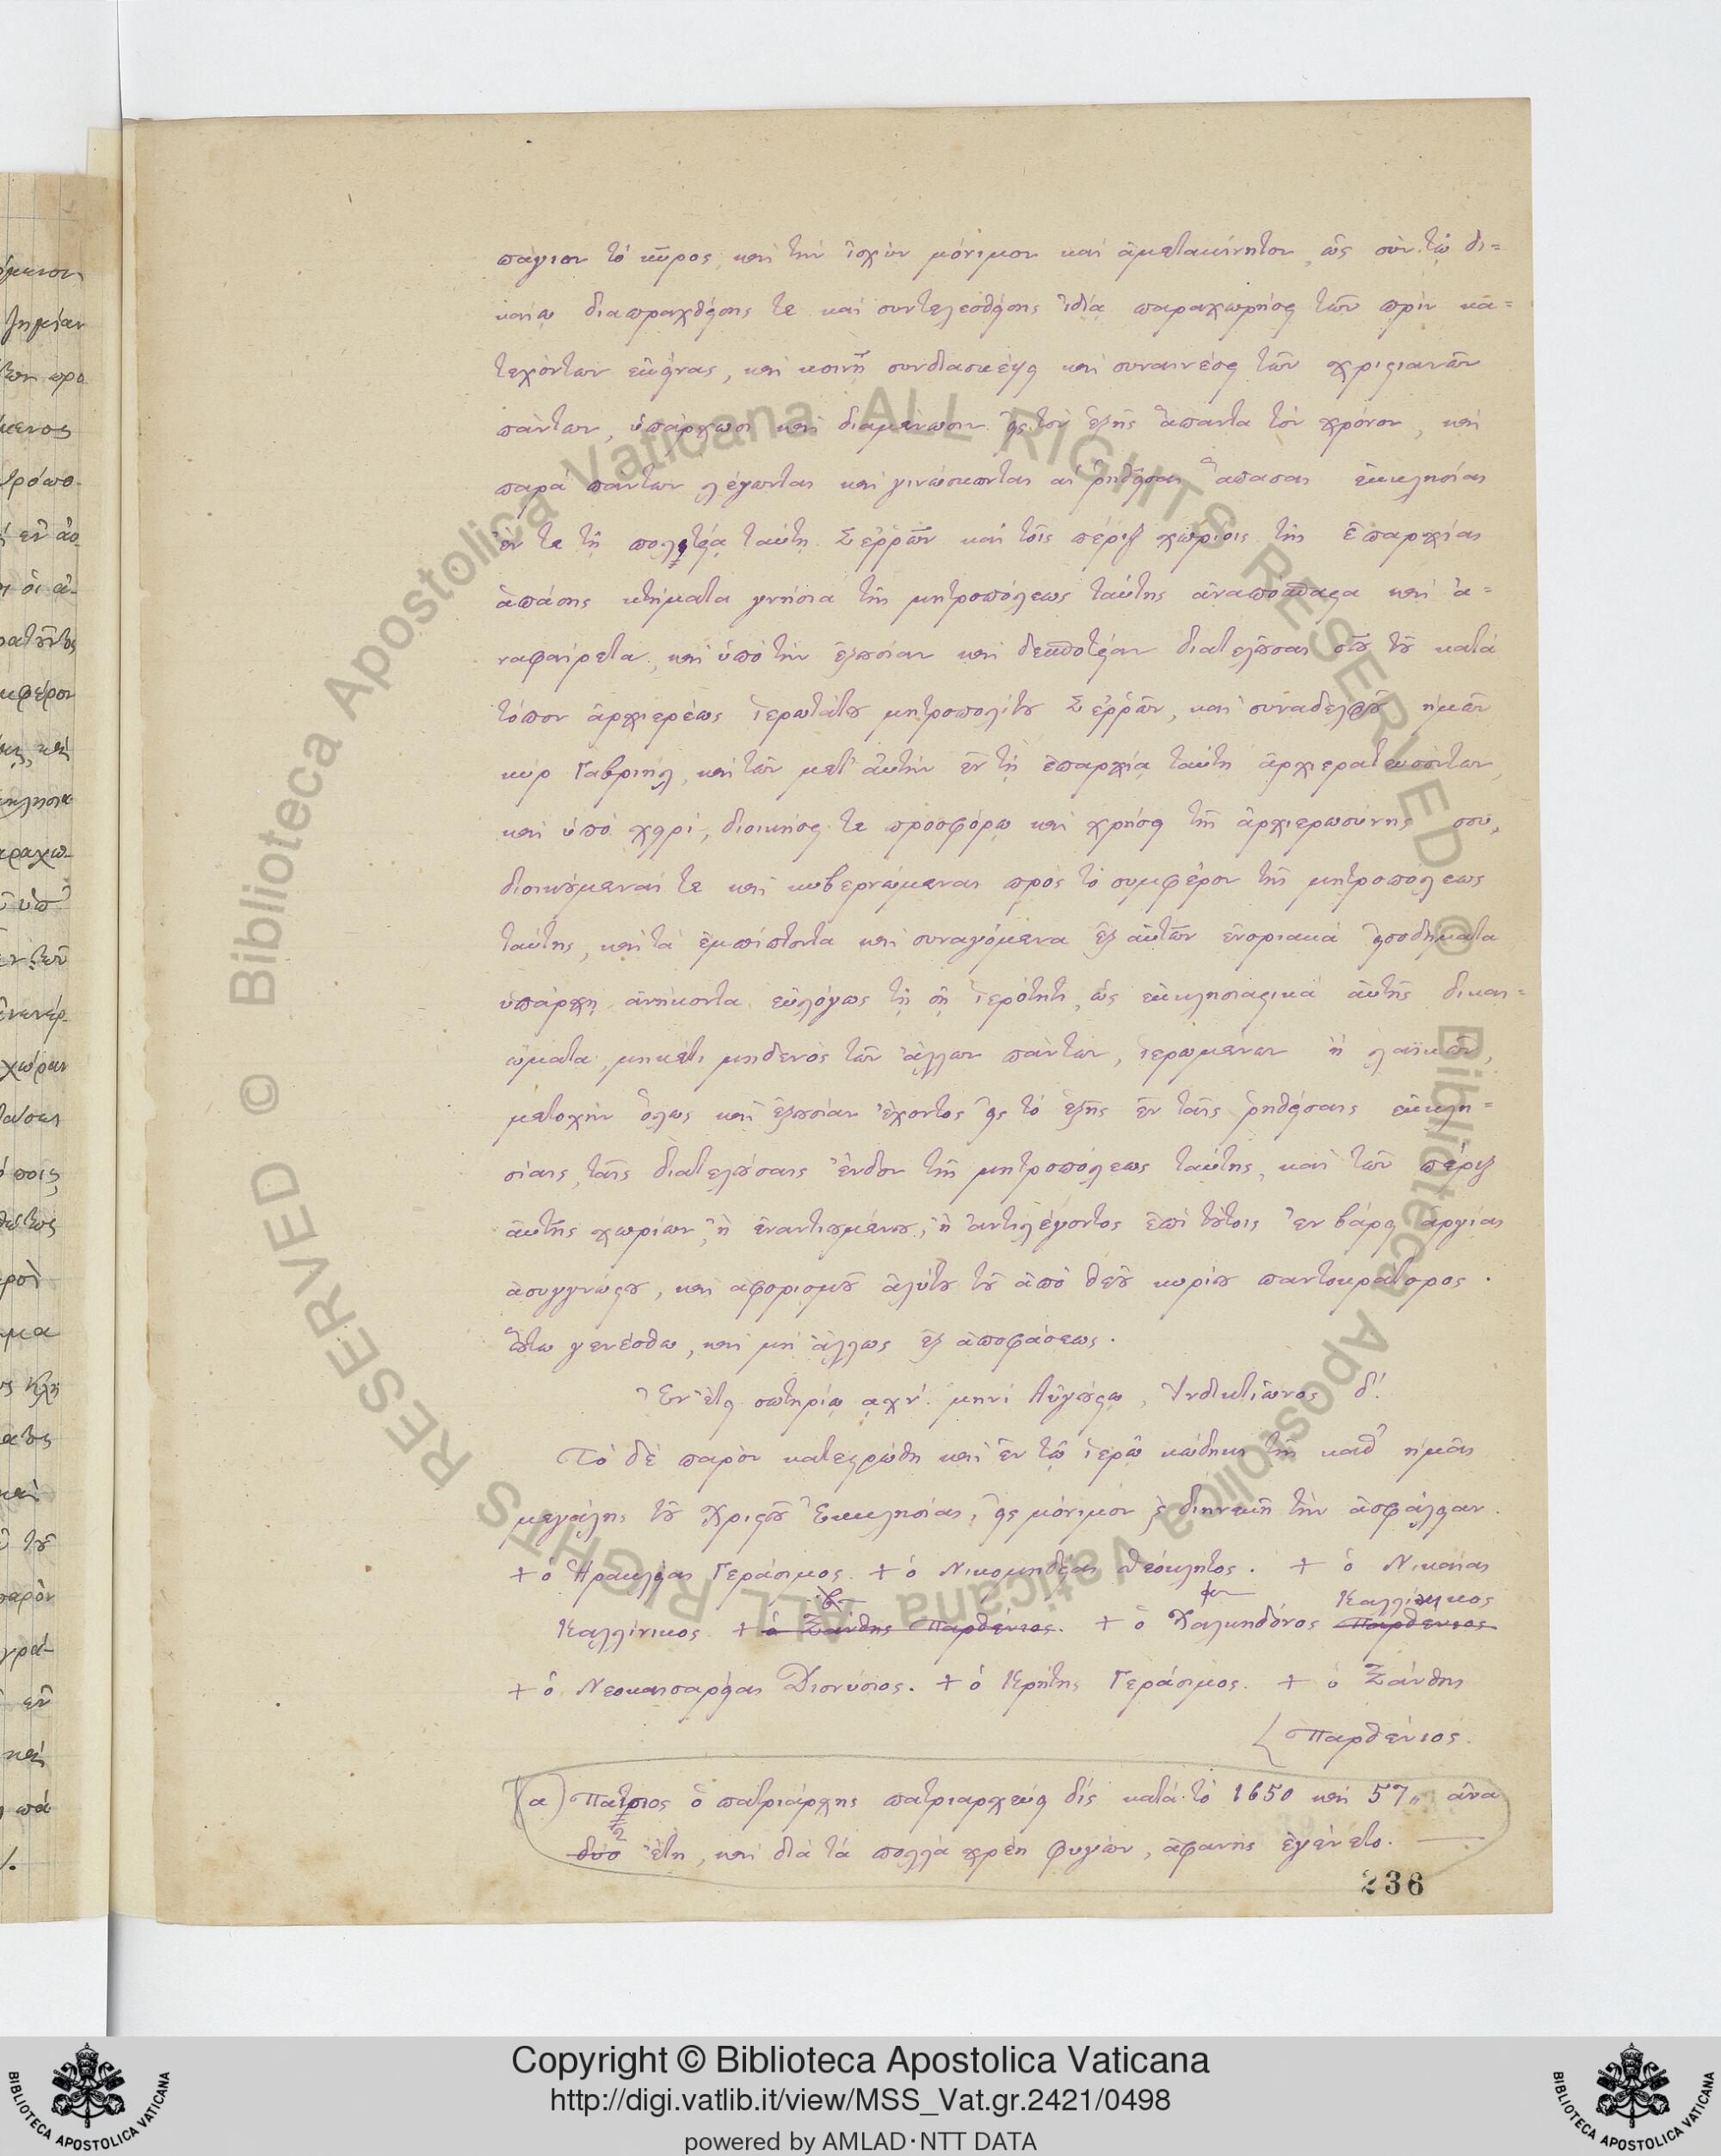 πάγιον τὸ κῦρος καὶ τὴν ἰσχὺν μόνιμον καὶ ἀμετακίνητον, ὡς σὺν τῷ δι=
καίῳ διαπραχθείσης τε καὶ συντελεσθείσης ἰδίᾳ παραχωρήσει τῶν πρὶν κα=
τεχόντων ἐκείνας, καὶ κοινῇ συνδιασκέψει καὶ συναινέσει τῶν χριστιανῶν
πάντων, ὑπάρχωσι καὶ διαμένωσιν εἰς τὸν ἑξῆς ἅπαντα τὸν χρόνον, καὶ
παρὰ πάντων λέγωνται καὶ γινώσκωνται αἱ ῥηθεῖσαι ἅπασαι ἐκκλησίαι
ἔν τε τῇ πολιτείᾳ ταύτῃ Σεῤῥῶν καὶ τοῖς πέριξ χωρίοις τῆς ἐπαρχίας
ἁπάσης κτήματα γνήσια τῆς μητροπόλεως ταύτης ἀναπόσπαστα καὶ ἀ=
ναφαίρετα, καὶ ὑπὸ τὴν ἐξουσίαν καὶ δεσποτείαν διατελοῦσαι σοῦ τοῦ κατὰ
τόπον ἀρχιερέως ἱερωτάτου μητροπολίτου Σεῤῥῶν, καὶ συναδελφοῦ ἡμῶν
κὺρ Γαβριήλ, καὶ τῶν μετ' αὐτὴν ἐν τῇ ἐπαρχίᾳ ταύτῃ ἀρχιερατευσόντων,
καὶ ὑπὸ χειρί, διοικήσει τε προσφόρῳ καὶ χρήσει τῆς ἀρχιερωσύνης σου,
διοικούμεναί τε καὶ κυβερνώμεναι πρὸς τὸ συμφέρον τῆς μητροπόλεως
ταύτης, καὶ τὰ ἐμπίπτοντα καὶ συναγόμενα ἐξ αὐτῶν ἐνοριακὰ εἰσοδήματα
ὑπάρχῃ ἀνήκοντα εὐλόγως τῇ σῇ ἱερότητι, ὡς ἐκκλησιαστικὰ αὐτῆς δικαι=
ώματα, μηκέτι μηδενὸς τῶν ἄλλων πάντων, ἱερωμένων ἢ λαϊκῶν,
μετοχὴν ὅλως καὶ ἐξουσίαν ἔχοντος εἰς τὸ ἑξῆς ἐν ταῖς ῥηθείσαις ἐκκλη=
σίαις, ταῖς διατελούσαις ἔνδον τῆς μητροπόλεως ταύτης, καὶ τῶν πέριξ
αὐτῆς χωρίων, ἢ ἐναντιουμένου, ἢ ἀντιλέγοντος ἐπὶ τούτοις ἐν βάρει ἀργίας
ἀσυγγνώστου, καὶ ἀφορισμοῦ ἀλύτου τοῦ ἀπὸ θεοῦ κυρίου παντοκράτορος.
Οὕτω γενέσθω, καὶ μὴ ἄλλως ἐξ ἀποφάσεως.
Ἐν ἔτει σωτηρίῳ αχν΄. μηνὶ Αὐγούστῳ, Ἰνδικτιῶνος δ΄.
Τὸ δὲ παρὸν κατεστρώθη καὶ ἐν τῷ ἱερῷ κώδηκι τῆς καθ' ἡμᾶς
μεγάλης τοῦ Χριστοῦ Ἐκκλησίας, εἰς μόνιμον ϗ διηνεκῆ τὴν ἀσφάλειαν.
+ ὁ Ἡρακλείας Γεράσιμος. + ὁ Νικομηδείας Θεόκλητος. + ὁ Νικαίας
Καλλίνικος
Καλλίνικος + ὁ Ξάνθης Παρθένιος. + ὁ Χαλκηδόνος Παρθένιος
+ ὁ Νεοκαισαρείας Διονύσιος. + ὁ Κρήτης Γεράσιμος. + ὁ Ξάνθης
Παρθένιος.
(α) Πατριος ὁ πατριάρχης πατριαρχεύει δὶς κατὰ τὸ 1650 καὶ 57,, ἀνὰ
δύο ἔτη, καὶ διὰ τὰ πολλὰ χρέη φυγών, ἀφανὴς ἐγένετο.
236
© Biblioteca Apostolica Vaticana ALL RIGHTS RESERVED © Biblioteca Apostolica Vaticana ALL RIGHTS RESERVED
Copyright © Biblioteca Apostolica Vaticana
http://digi.vatlib.it/view/MSS_Vat.gr.2421/0498
powered by AMLAD·NTT DATA
BIBLIOTECA APOSTOLICA VATICANA
BIBLIOTECA APOSTOLICA VATICANA